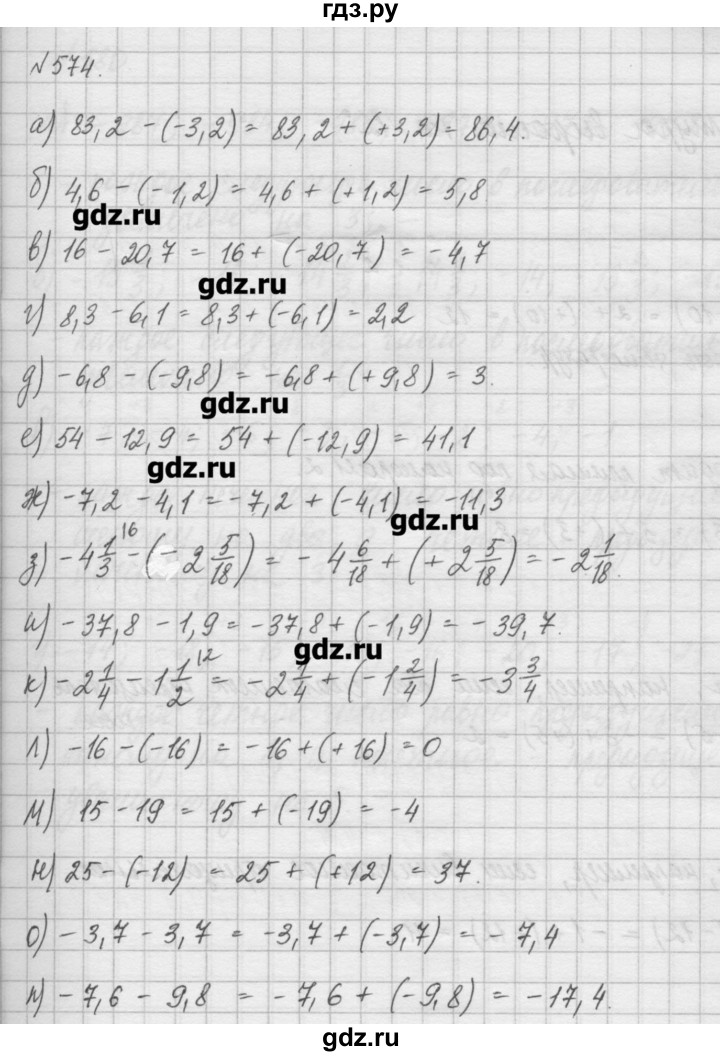 гдз.ру
№574.
а) 83,2 - (-3,2) = 83,2 + (+3,2) = 86,4.
б) 4,6 - (-1,2) = 4,6 + (+1,2) = 5,8
gdz.ru
в) 16 - 20,7 = 16 + (-20,7) = -4,7
gdz.ru
г) 8,3 - 6,1 = 8,3 + (-6,1) = 2,2
д) -6,8 - (-9,8) = -6,8 + (+9,8) = 3.
gdz.ru
е) 54 - 12,9 = 54 + (-12,9) = 41,1
gdz.ru
ж) -7,2 - 4,1 = -7,2 + (-4,1) = -11,3
gdz.ru
з) -4 1/3 |6 - (-2 5/18) = -4 6/18 + (+2 5/18) = -2 1/18.
и) -37,8 - 1,9 = -37,8 + (-1,9) = -39,7.
gdz.ru
к) -2 1/4 - 1 1/2 |2 = -2 1/4 + (-1 2/4) = -3 3/4
л) -16 - (-16) = -16 + (+16) = 0
м) 15 - 19 = 15 + (-19) = -4
н) 25 - (-12) = 25 + (+12) = 37.
о) -3,7 - 3,7 = -3,7 + (-3,7) = -7,4
п) -7,6 - 9,8 = -7,6 + (-9,8) = -17,4.
gdz.ru